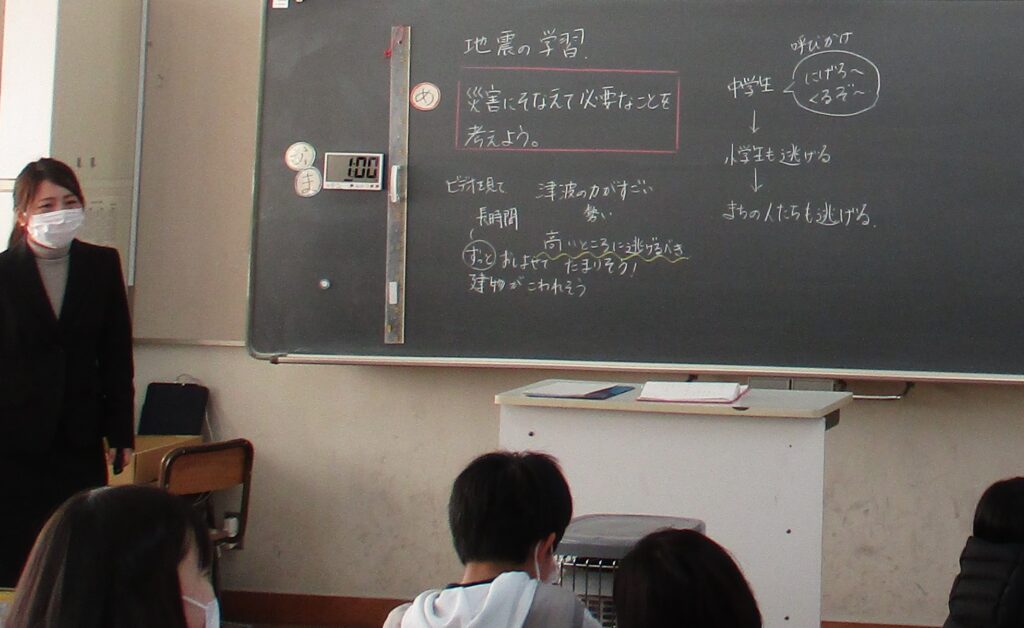 地震の学習.
め
災害にそなえて必要なことを
考えよう。
ま
1:00
ビデオを見て 津波の力がすごい
長時間 勢い
高いところに逃げるべき
ずっとおしよせて たまりそう!
建物がこわれそう
呼びかけ
中学生
にげろ~
くるぞ~
↓
小学生も逃げる
↓
まちの人たちも逃げる.